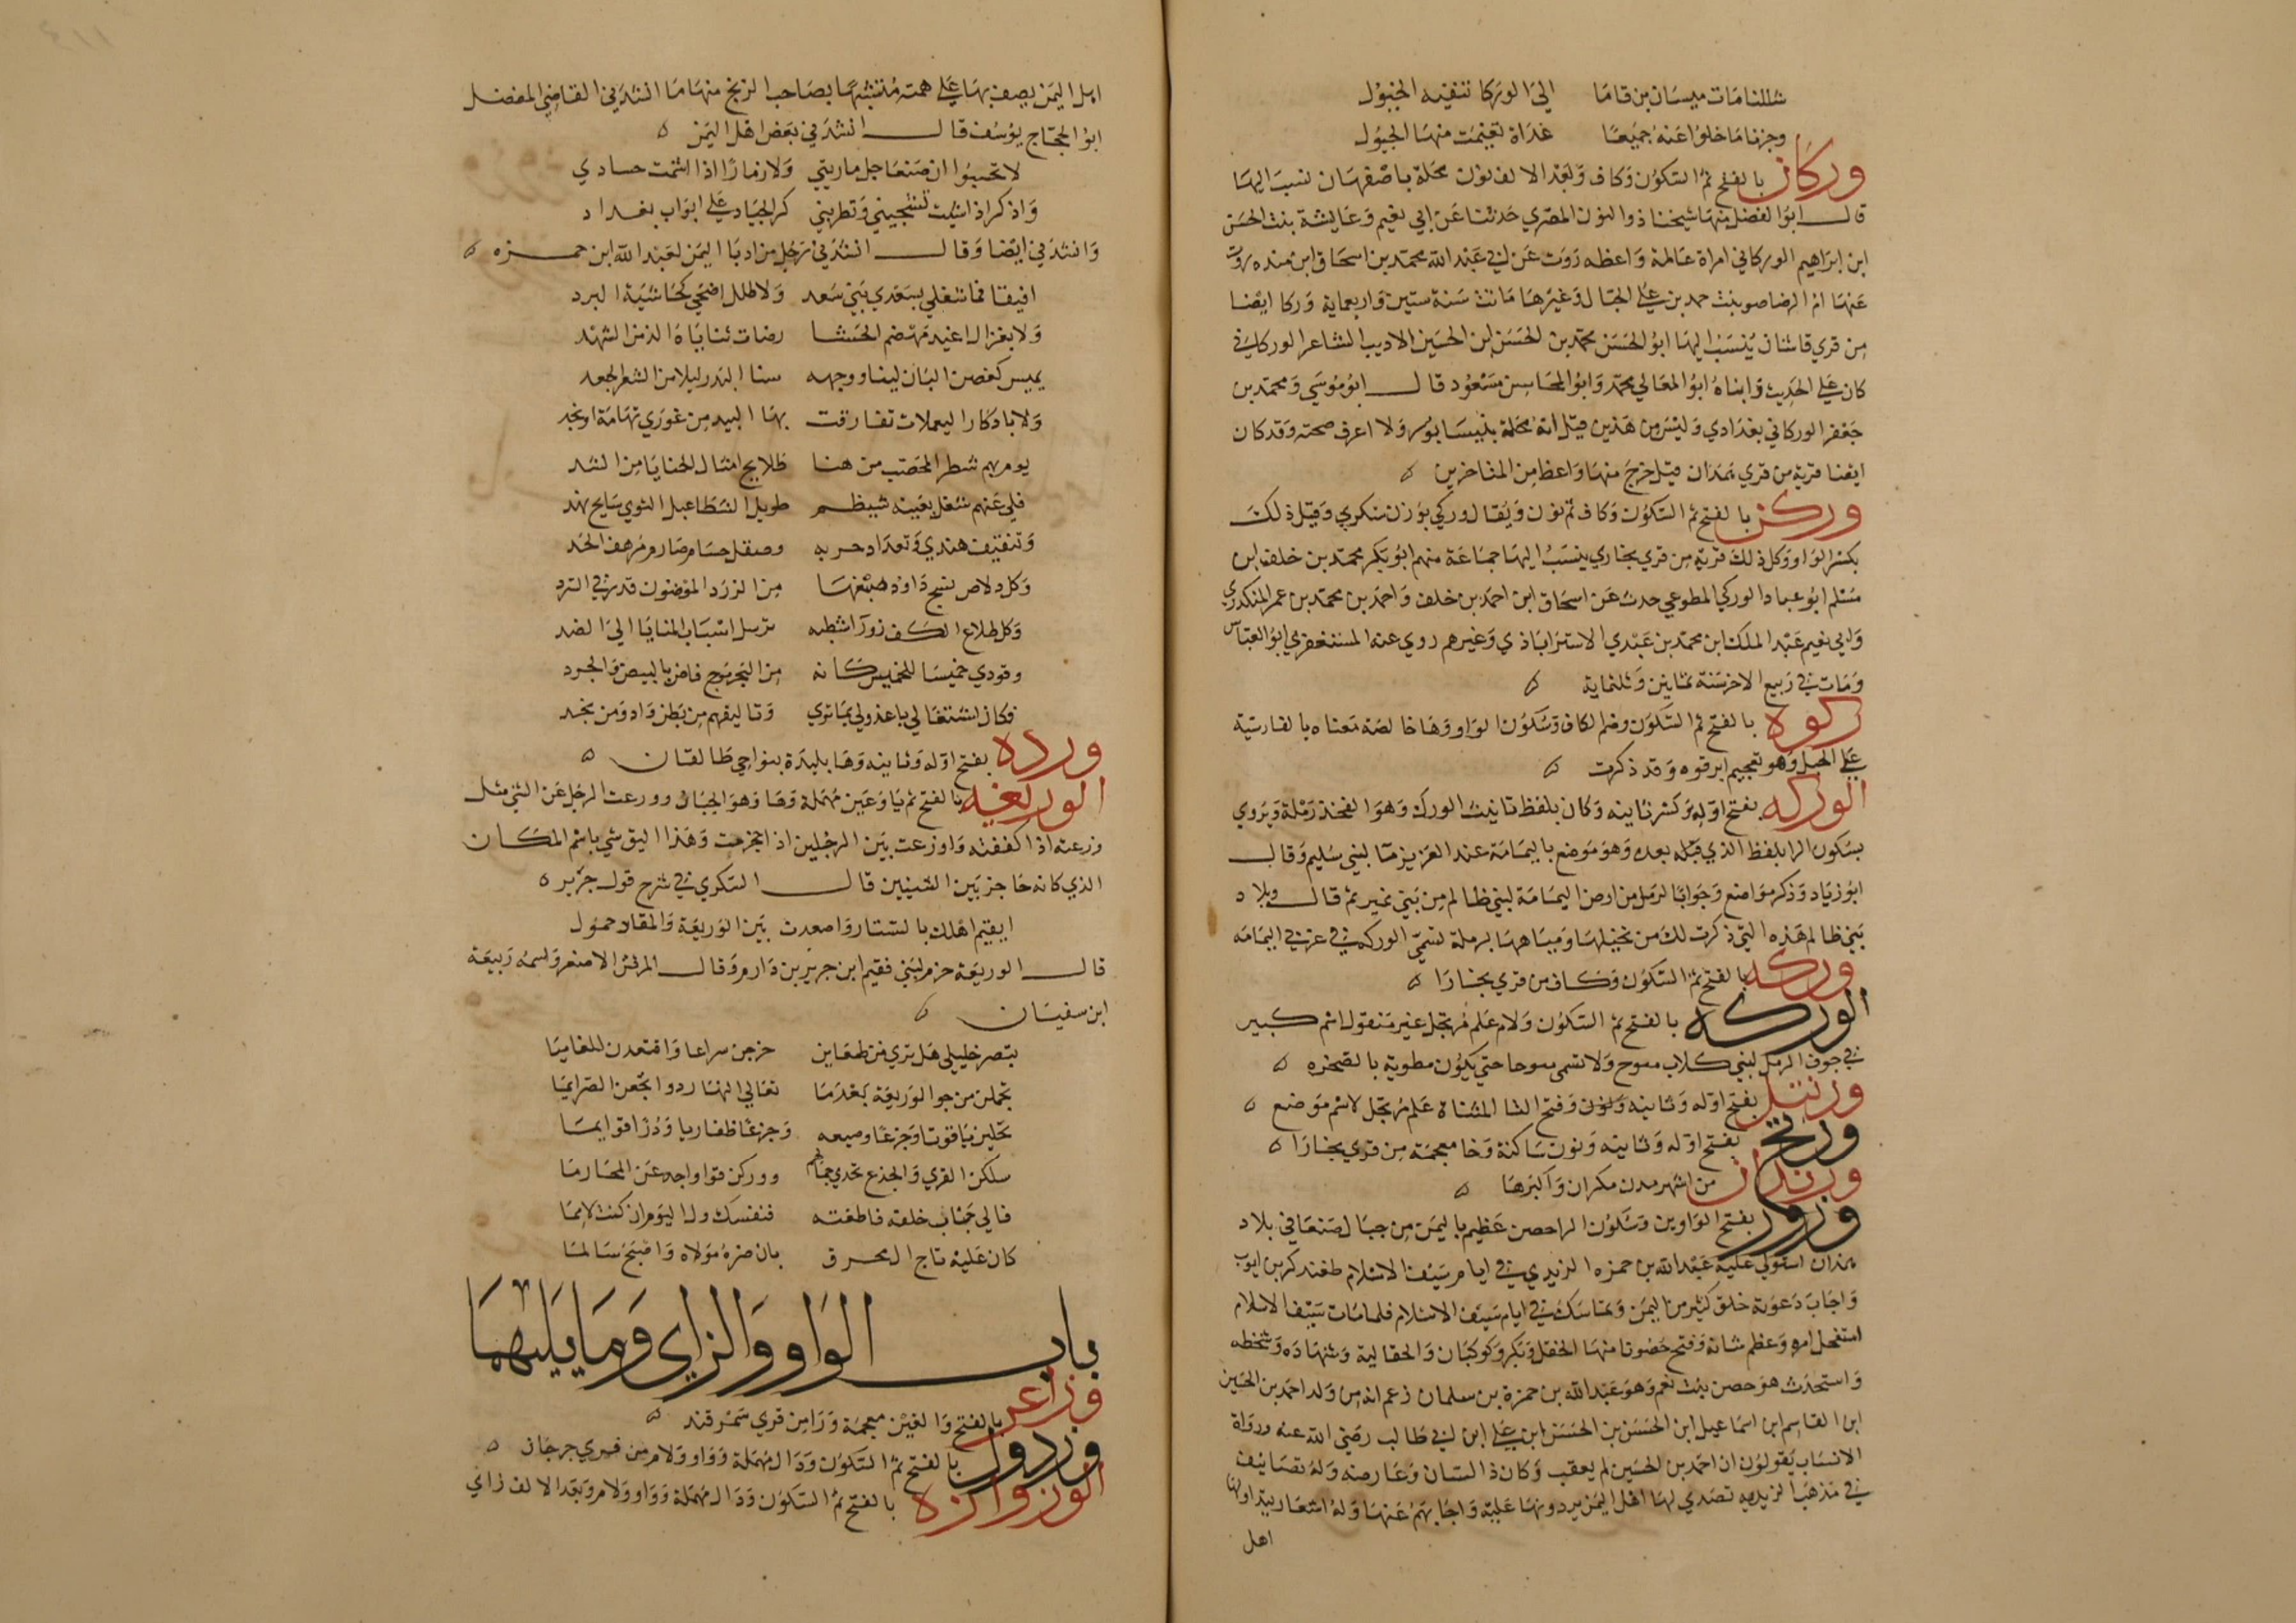 شللنا مات ميسان بن قاما الي الوركا تنفيه الخبول
وجزنا ما خلوا عنه جميعا غداة تغيمت منها الجبول
وركان بالفتح ثم السكون وكاف وبعد الالف نون محلة باصفهان نسب اليها
قال ابو الفضل منها شيخنا ذو النون المصري حدثنا عن ابي نعيم وعايشة بنت الحسن
ابن ابراهيم الوركاني امراة عالمة واعظه روت عن ابي عبد الله محمد بن اسحاق ابن منده روت
عنها ام الرضا صو بنت حمد بن علي الحبال وغيرها ماتت سنة ستين واربعماية وركا ايضا
من قري قاشان ينسب اليها ابو الحسن محمد بن الحسن ابن الحسين الاديب الشاعر الوركاني
كان علي الحديث وابناه ابو المعالي محمد وابو المحاسن مسعود قال ابو موسي ومحمد بن
جعفر الوركاني بغدادي وليس من هذين قيل انه محلة بنيسابور ولا اعرف صحته وقد كان
ايضا قرية من قري همدان قيل خرج منها واعظ من المتاخرين
وركن بالفتح ثم السكون وكاف ثم نون ويقال وركي بوزن سكري وقيل ذلك
بكسر الواو وكل ذلك قرية من قري بخاري ينسب اليها جماعة منهم ابو بكر محمد بن خلف ابن
مسلم ابو عباد الوركي المطوعي حدث عن اسحاق ابن احمد بن خلف واحمد بن محمد بن عمر المنكدري
وابي نعيم عبد الملك ابن محمد بن عبدي الاستراباذي وغيرهم روي عنه المستغفري ابو العباس
ومات في ربيع الاخر سنة ثمانين وثلثماية
بالفتح ثم السكون وضم الكاف وسكون الواو وها خالصة معناه بالفارسية
علي الجبل وهو تعجيم ابرقوه وقد ذكرت
الوركه بفتح اوله وكسر ثانيه وكان بلفظ تانيث الورك وهو الفخذ رملة ويروي
بسكون الرا بلفظ الذي قبله بعده وهو موضع باليمامة عند العزيز ما لبني سليم وقال
ابو زياد وذكر مواضع وجوابا لرمل من ارض اليمامة لبني ظالم من بني نمير ثم قال وبلاد
بني ظالم هذه التي ذكرت لك من نخيلها ومياهها برملة تسمي الوركه في عزيز اليمامه
وركه بالفتح ثم السكون وكاف من قري بخارا
الوركه بالفتح ثم السكون ولام علم مرتجل غير منقول اسم كبير
في جوف الرمل لبني كلاب ولا تسمي حتي يكون مطوية بالصخره
ورنتل بفتح اوله وثانيه ونون وفتح التا المثناة علم مرتجل لاسم موضع
ورنخ بفتح اوله وثانيه ونون ساكنة وخا معجمة من قري بخارا
ورندان من اشهر مدن مكران واكبرها
ورور بفتح الواوين وسكون الرا حصن عظيم باليمن من جبال صنعا في بلاد
همدان استولي عليه عبد الله بن حمزه الزيدي في ايام سيف الاسلام طغتدكر بن ايوب
واجاب دعوته خلق كثير من اليمن وتماسك في ايام سيف الاسلام فلما مات سيف الاسلام
استفحل امره وعظم شانه وفتح حصونا منها الحقل وبكر وكوكبان والحقالية وشهاده وشخطه
واستحدث هو حصن بنت نعم وهو عبد الله بن حمزة بن سلمان زعم انه من ولد احمد بن الحسين
ابن القاسم ابن اسماعيل ابن الحسن بن الحسن ابن علي ابن ابي طالب رضي الله عنه ورواة
الانساب يقولون ان احمد بن الحسين لم يعقب وكان ذا لسان وعارضه وله تصانيف
في مذهب الزيديه تصدي لها اهل اليمن يردونها عليه واجابهم عنها وله اشعار
اهل
اهل اليمن يصف بها علي همته متشبها بصاحب الزنج منها ما انشدني القاضي المفضل
ابو الحجاج يوسف قال انشدني بعض اهل اليمن
لا تحسبوا ان صنعا جل ماربتي ولا زمارا اذا اشمت حسادي
واذكر اذا شئت تشجيني وتطربني كر الجياد علي ابواب بغداد
وانشدني ايضا وقال انشدني رجل من ادبا اليمن لعبد الله ابن حمزه
افيقا فما شغلي بسعدي بني سعد ولا طلل اضحي كحاشية البرد
ولا بغزال اغيد مهضم الحشا رضات ثناياه الذ من الشهد
يميس كغصن البان لينا ووجهه سنا البدر ليلا من الشعر الجعد
ولا بادكار اليعملات تقاذفت بها البيد من غوري تهامة او نجد
يومهم شطر المحصب من هنا طلايح امثال الحنايا من الشد
فلي عنهم شغل بقينة شيظم طويل الشظا عبل الشوي سايح نهد
وتثقيف هندي وتعداد حربه وصقل حسام صارم مرهف الحد
وكل دلاص نسج داود صبغها من الزرد الموضون قدر في السرد
وكل طلاع الكف زورا شطبه ترسل اسباب المنايا الي الضد
وقودي خميسا للخميس كانه من البحر موج فاض بالبيض والجرد
فكان اشتغالي يا عذولي بما تري وتاليفهم من بطن واد ومن نجد
ورده بفتح اوله وثانيه وها بليدة بنواحي طالقان
الوريعه بالفتح ثم يا وعين مهملة وها وهو الجبان وورعت الرجل عن الشي مثل
وزعته اذا كففته واوزعت بين الرجلين اذا حجزت وهذا اليق شي باسم المكان
الذي كانه حاجز بين الشيئين قال السكري في شرح قول جرير
ايقيم اهلك بالستار واصعدت بين الوريعة والمقاد حمول
قال الوريعة حزم لبني فقيم ابن جرير بن دارم وقال المرقش الاصغر واسمه ربيعة
ابن سفيان
تبصر خليلي هل تري من ظعاين خرجن سراعا واقتعدن المفاييا
تحملن من جو الوريعة بعدما تعالي النهار دوا نجعن الصرايما
تحلين ياقوتا وجزعا وصيعه وجزعا ظفاريا ودرا توايما
سلكن القري والجذع تحدي جمالهم ووركن قوا واجه عن المخارما
فالي جناب خلقة فاطعته فنفسك ول اليوم ان كنت لايما
كان عليه تاج ال محرق بان ضره مولاه واصبح سالما
باب الواو والزاي وما يليهما
وزاغر بالفتح والغين معجمة ورا من قري سمرقند
وزدول بالفتح ثم السكون ودال مهملة وواو ولام من قري جرجان
الوزوازه بالفتح ثم السكون ودال مهملة وواو ولام وبعد الالف زاي